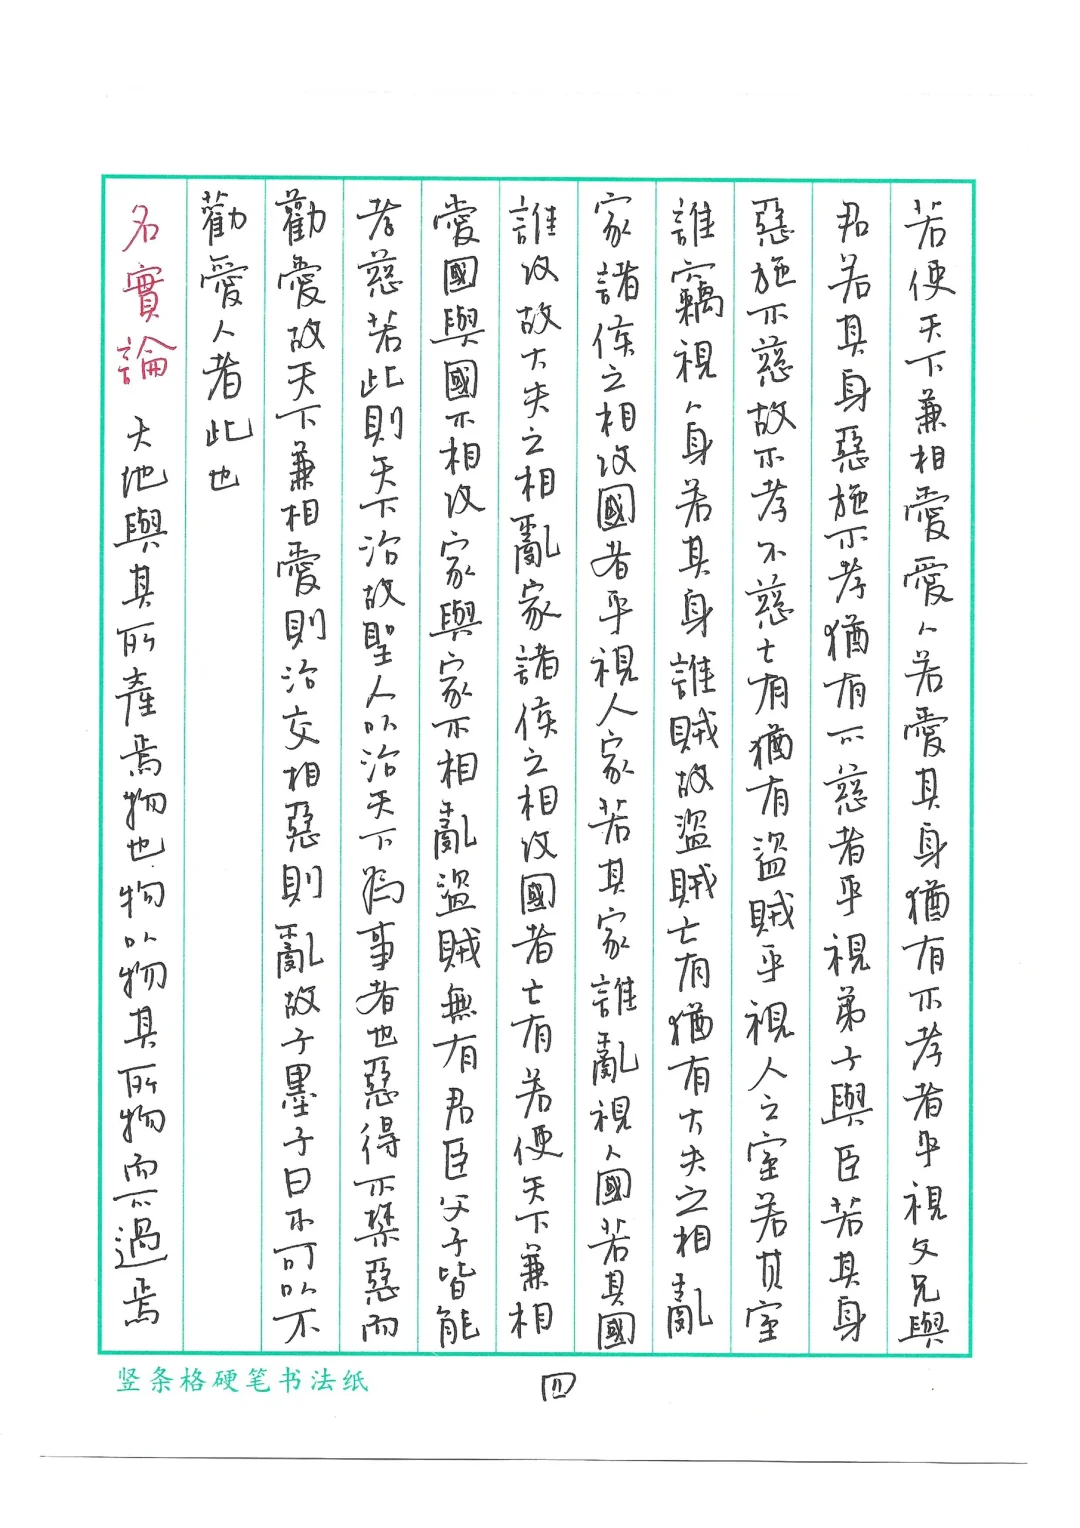 若使天下兼相愛愛人若愛其身猶有不孝者乎視父兄與
君若其身惡施不孝猶有不慈者乎視弟子與臣若其身
惡施不慈故不孝不慈亡有猶有盜賊乎視人之室若其室
誰竊視人身若其身誰賊故盜賊亡有猶有大夫之相亂
家諸侯之相攻國者乎視人家若其家誰亂視人國若其國
誰攻故大夫之相亂家諸侯之相攻國者亡有若使天下兼相
愛國與國不相攻家與家不相亂盜賊無有君臣父子皆能
孝慈若此則天下治故聖人以治天下為事者也惡得不禁惡而
勸愛故天下兼相愛則治交相惡則亂故子墨子曰不可以不
勸愛人者此也
名實論 天地與其所產焉物也物以物其所物而不過焉
竖条格硬笔书法纸
四